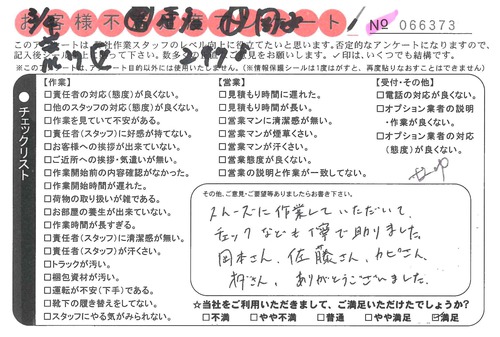 お客様不満足度アンケート
No 066373
このアンケートは
作業スタッフのレベル向上に役立てたいと思います。否定的なアンケートになりますので、
記入後
下さい。
ご意見をお願いします。✓印は、いくつでも結構です。
※このアンケートは、アンケート目的以外には使用いたしません。(※情報保護シールは1度はがすと、再度貼りなおすことはできません)
チェックリスト
【作業】
□責任者の対応(態度)が良くない。
□他のスタッフの対応(態度)が良くない。
□作業を見ていて不安がある。
□責任者(スタッフ)に好感が持てない。
□お客様への挨拶が出来ていない。
□ご近所への挨拶・気遣いが無い。
□作業開始前の内容確認がなかった。
□作業開始時間が遅れた。
□荷物の取り扱いが雑である。
□お部屋の養生が出来ていない。
□作業時間が長すぎる。
□責任者(スタッフ)に清潔感が無い。
□責任者(スタッフ)が汗くさい。
□トラックが汚い。
□梱包資材が汚い。
□運転が不安(下手)である。
□靴下の履き替えをしてない。
□スタッフにやる気がみられない。
【営業】
□見積もり時間に遅れた。
□見積もり時間が長い。
□営業マンに清潔感が無い。
□営業マンが煙草くさい。
□営業マンが汗くさい。
□営業態度が良くない。
□営業の説明と作業が一致してない。
【受付・その他】
□電話の対応が良くない。
□オプション業者の説明
・作業が良くない。
□オプション業者の対応
(態度)が良くない。
その他、ご意見・ご要望等ありましたらお書き下さい。
スムーズに作業していただいて、
チェックなども丁寧で助りました。
岡本さん、佐藤さん、カピさん、
林さん、ありがとうございました。
☆当社をご利用いただきまして、ご満足いただけたでしょうか?
□不満 □やや不満 □普通 □やや満足 ☑満足